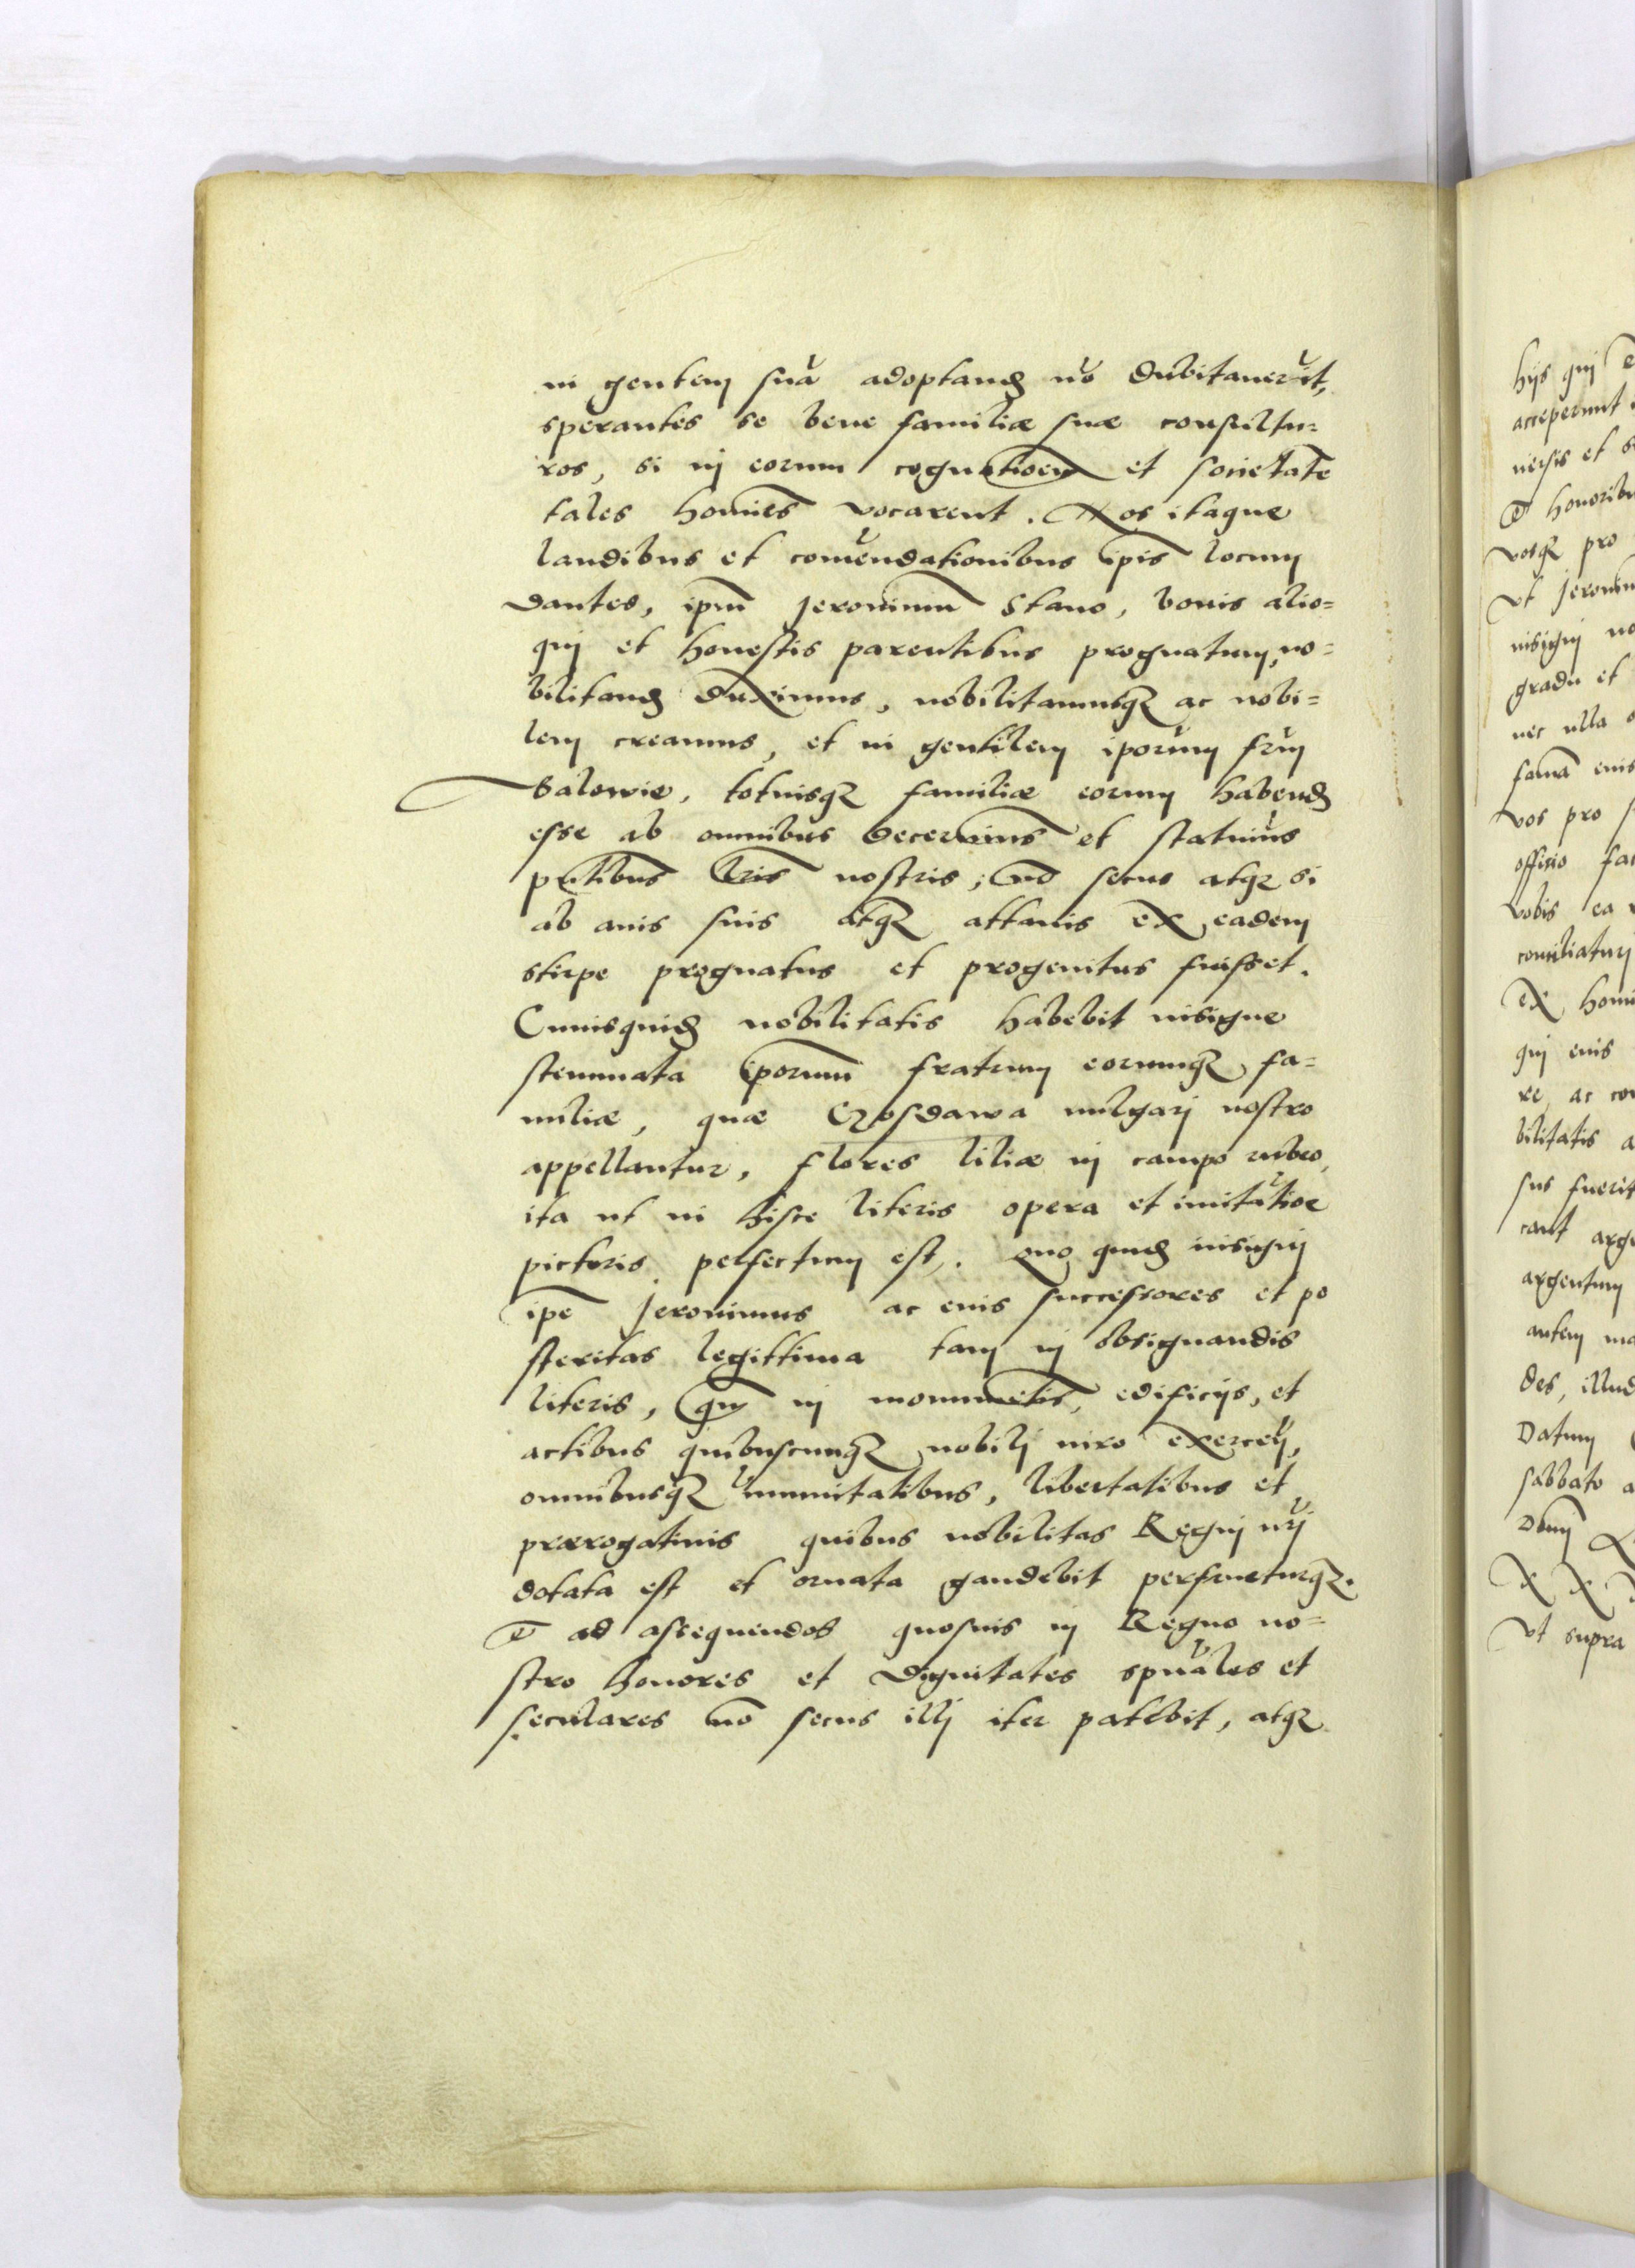 in gentem suã adoptand nõ dubitauerũt,
sperantes se bene familiæ suæ consultu=
ros, si in eorum cognatioem et societatẽ
tales homiẽs vocarent. Nos itaque
laudibus et comẽndationibus ip̃is locum
dantes, ip̃m Jeronimũ Stano, bonis alio=
qui et honestis parentibus prognatum, no=
bilitand duximus, nobilitamusq3 ac nobi=
lem creamus, et in gentilem ip̃orum fr̃um
Balowie, totiusq3 familiæ eorum habend
esse ab omnibus decernim̃s et statuim̃s
pñtibus lr̃is nostris; nõ secus atq3 si
ab auis suis atq3 attauis ex eadem
stirpe prognatus et progenitus fuisset.
Cuiusquid nobilitatis habebit insigne
stemmata ip̃orum fratrum eorumq3 fa=
miliæ, quæ Czosdawa uulgari nostro
appellantur, flores liliæ in campo rubeo,
ita ut in hisce literis opera et imitatioe
pictoris perfectum est. Quo quid insigni
ip̃e Jeronimus ac eius successores et po
steritas legittima tam in obsignandis
literis, q̃m in monumẽtis, edificijs, et
actibus quibuscumq3 nobili uiro exercẽ,
omnibusq3 immunitatibus, libertatibus et
prærogatiuis quibus nobilitas Regni nr̃i
dotata est et ornata gaudebit perfrueturq3.
Et ad assequendos quosuis in Regno no=
stro honores et dignitates spũales et
seculares nõ secus illi iter patebit, atq3
hijs qui
acceperunt
uersis et
Et honoribu
vosq3 pro
Vt Jeronim
insigni no
gradu et
nec ulla
famã eius
vos pro
officio
vobis ea
conciliaturi
Ex homi
qui eius
re, ac con
bilitatis
sus fuerit
argentum
autem
des, illud
Datum
Sabbato
Domi
X X
Vt supra